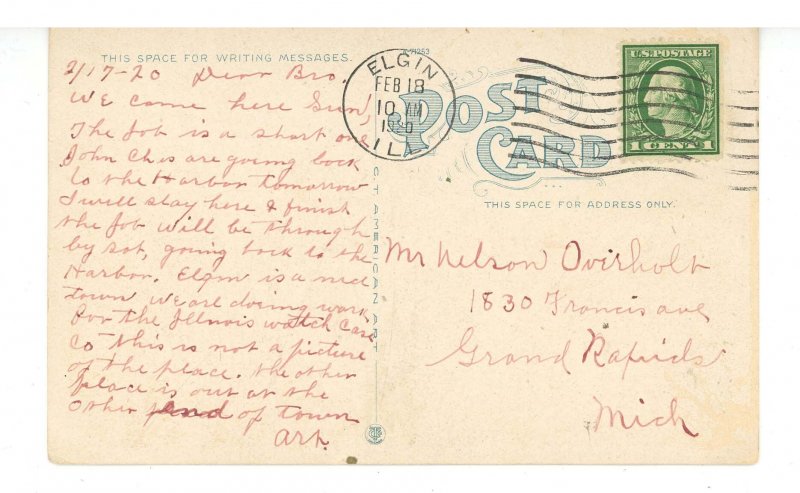 A-71253
THIS SPACE FOR WRITING MESSAGES.
POST CARD
THIS SPACE FOR ADDRESS ONLY.
C.T. AMERICAN ART
ELGIN
FEB 18
10 AM
1920
ILL
U.S. POSTAGE
1 CENT 1
2/17-20 Dear Bro.
We came here Sun,
The Job is a short one
John Chas are going back
to the Harbor tomorrow
I will stay here & finish
the job will be through
by sat, going back to the
Harbor. Elgin is a nice
town we are doing work
for the Illnois watch case
Co this is not a picture
of the place. the other
place is out at the
other end of town
Art.
Mr Nelson Ovirholt
1830 Francis ave
Grand Rapids
Mich